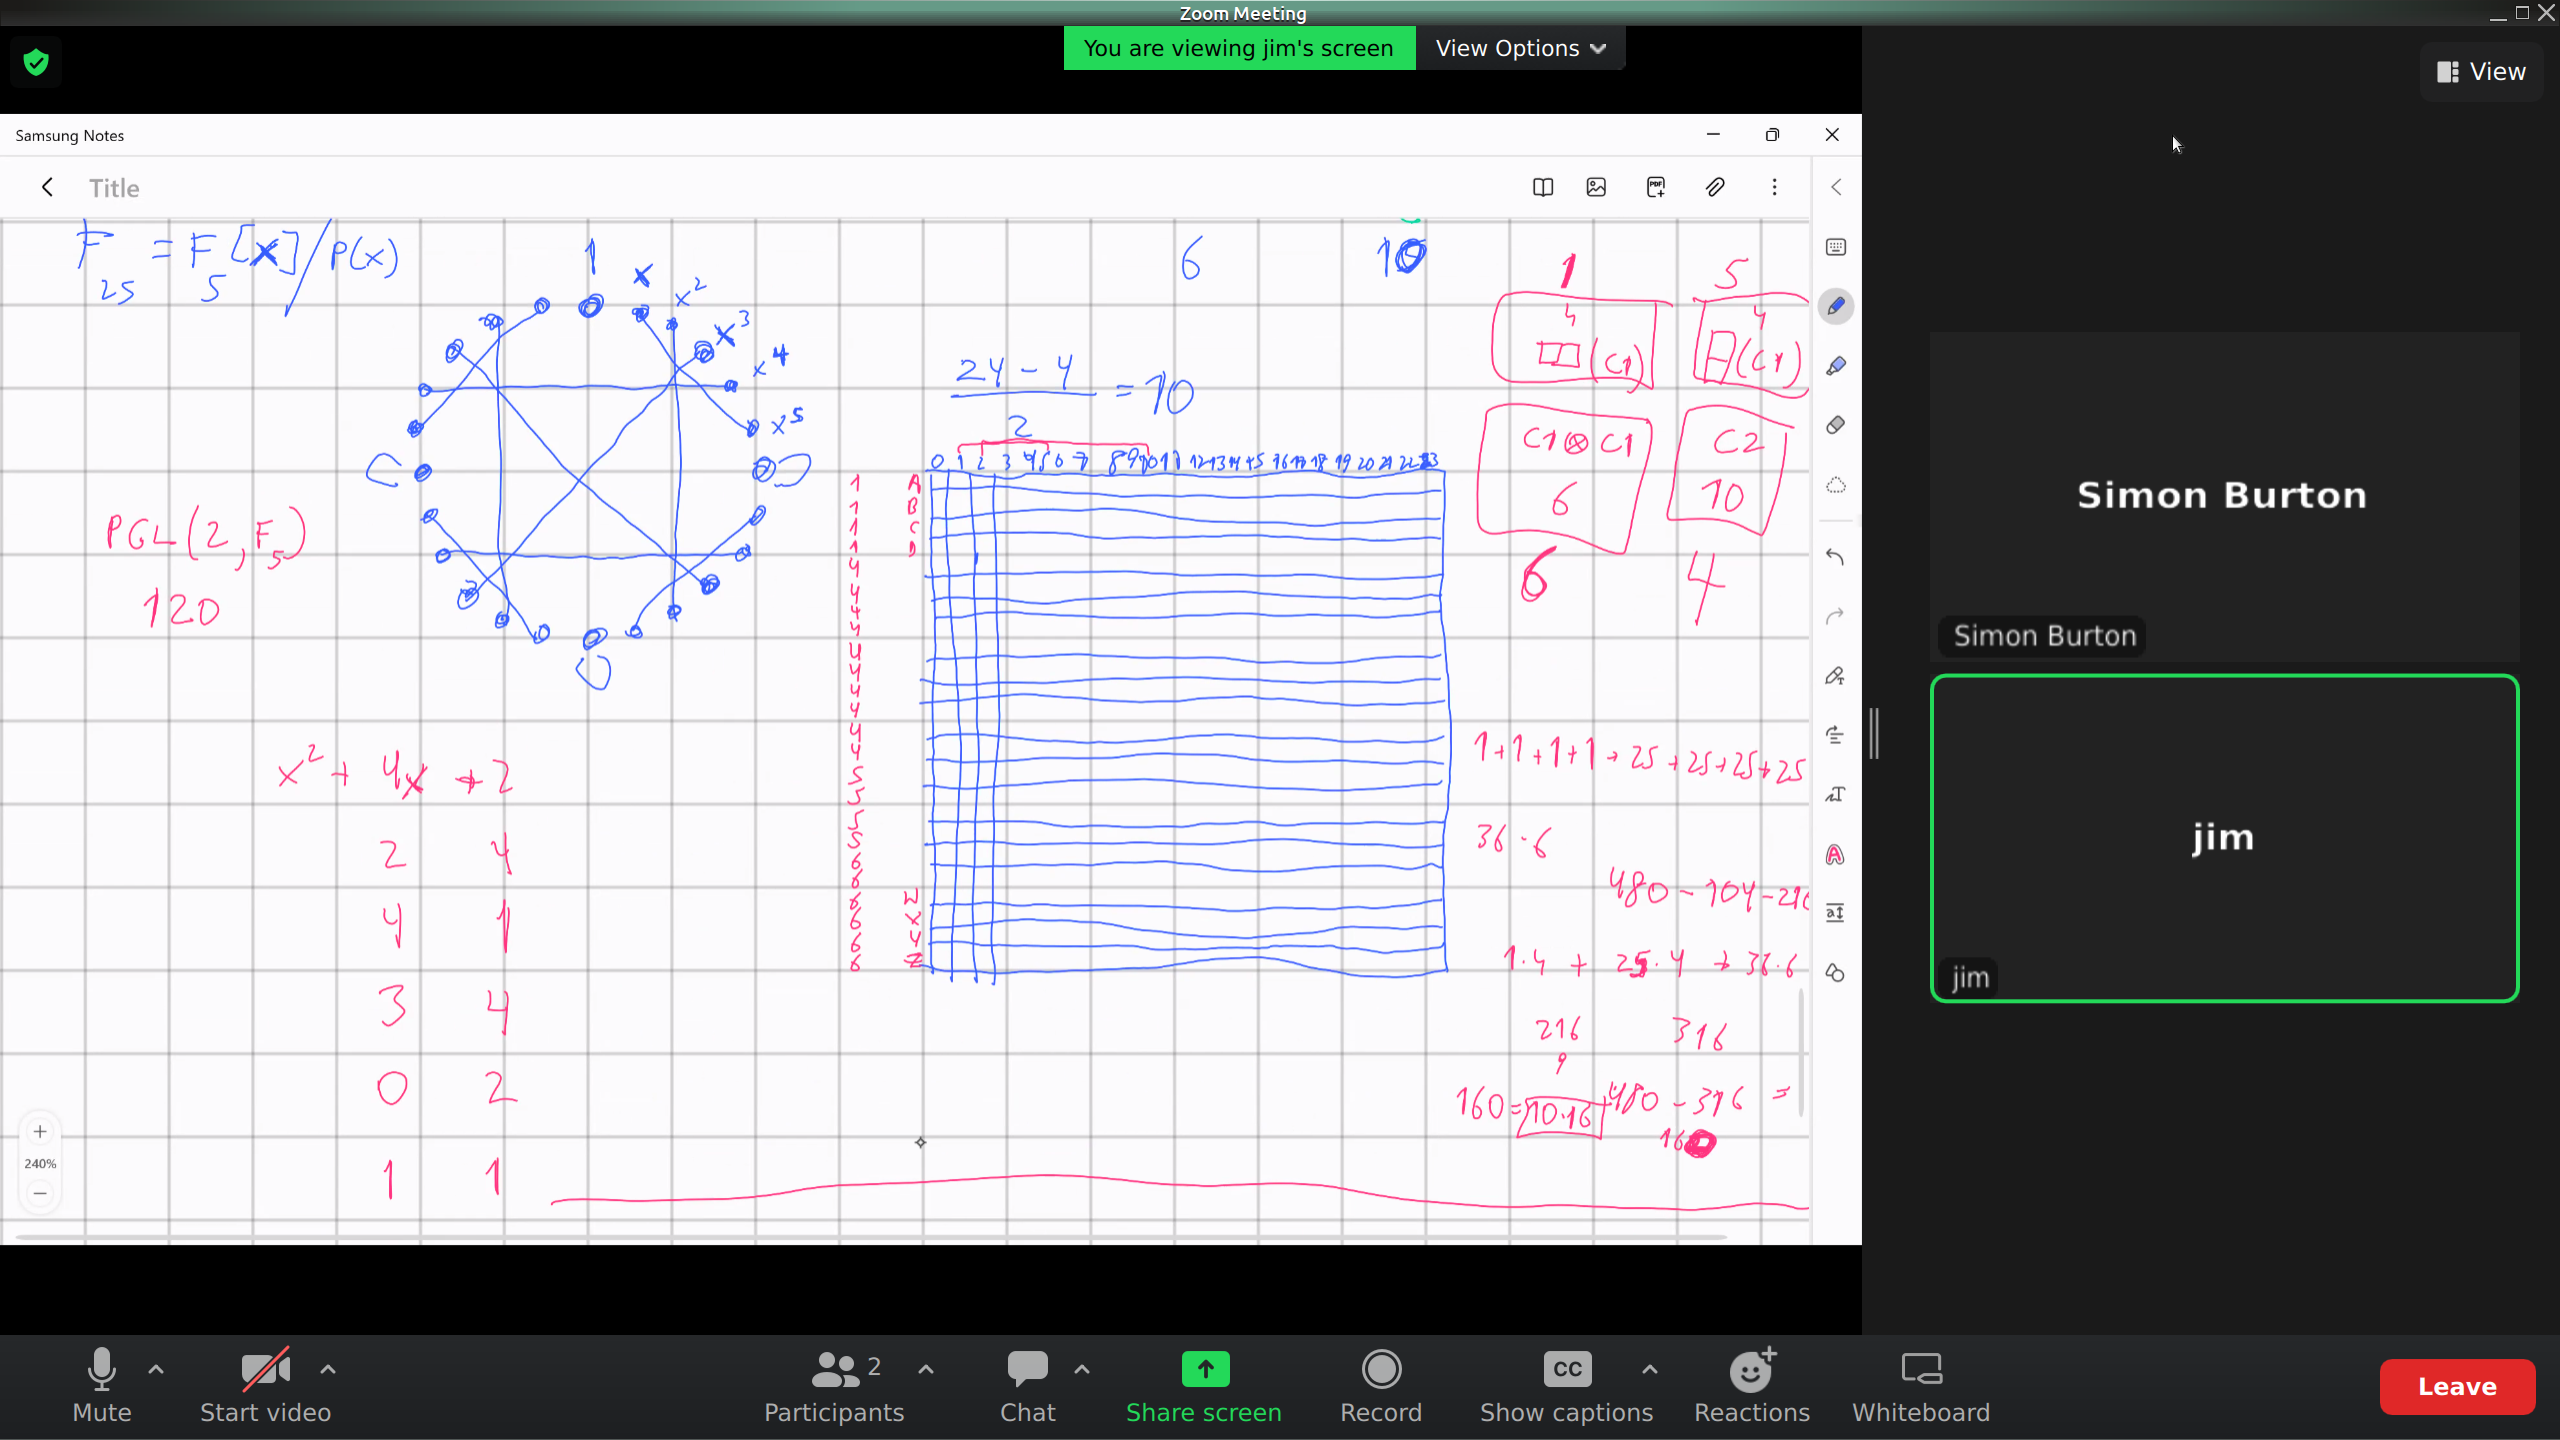 Zoom Meeting
You are viewing jim's screen
View Options
View
Samsung Notes
Title
F25 = F5[x]/P(x)
1
x
x²
x³
x⁴
x⁵
6
10
1
5
4
□□(C1)
4
(C1)
24 - 4
2
= 10
C1⊗C1
6
C2
10
6
4
PGL(2, F5)
120
0 1 2 3 4 5 6 7 8 9 10 11 12 13 14 15 16 17 18 19 20 21 22 23
1 A
1 B
1 C
1 D
4
4
4
4
4
4
4
4
4
4
5
5
5
5
6
6
6 W
6 X
6 Y
6 Z
x² + 4x + 2
2 4
4 1
3 4
0 2
1 1
1+1+1+1+25+25+25+25
36·6
480 - 104 - 216
1·4 + 25·4 + 36·6
216
316
160 = 10·16
480 - 316 =
160
240%
Simon Burton
Simon Burton
jim
jim
Mute
Start video
Participants
2
Chat
Share screen
Record
CC
Show captions
Reactions
Whiteboard
Leave